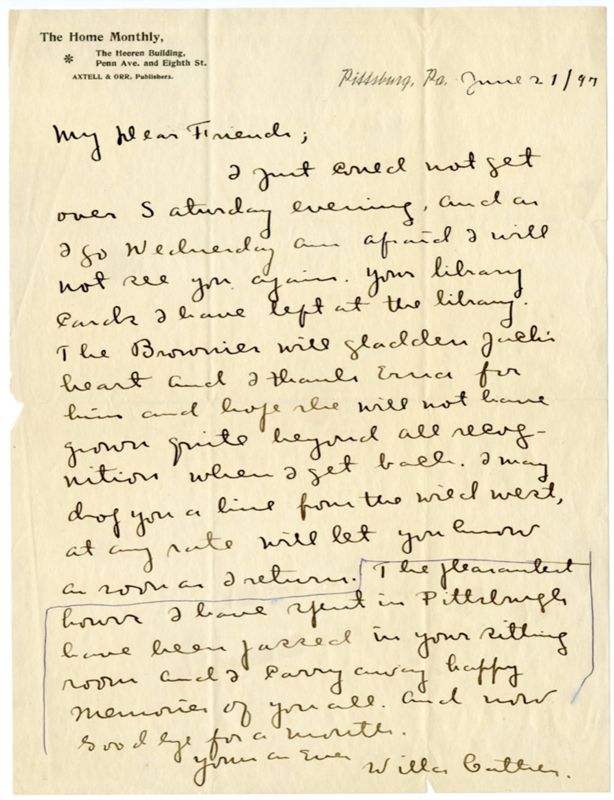 The Home Monthly,
* The Heeren Building,
Penn Ave. and Eighth St.
AXTELL & ORR, Publishers.
Pittsburg, Pa. June 21/97
My Dear Friends;
I just could not get
over Saturday evening, and as
I go Wednesday am afraid I will
not see you again. Your library
cards I have left at the library.
The Brownies will gladden Jack's
heart and I thank Erna for
him and hope she will not have
grown quite beyond all recog-
nition when I get back. I may
drop you a line from the wild west,
at any rate will let you know
as soon as I return. The pleasantest
hours I have spent in Pittsburgh
have been passed in your sitting
room and I carry away happy
memories of you all. And now
Good bye for a month.
Yours as Ever
Willa Cather.